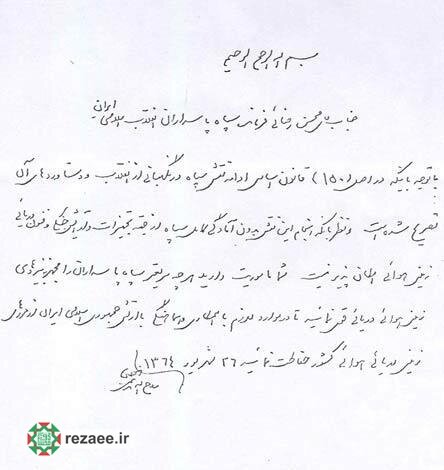 بسم الله الرحمن الرحیم
جناب آقای محسن رضائی فرمانده سپاه پاسداران انقلاب اسلامی ایران
با توجه باینکه در اصل (۱۵۰) قانون اساسی ادامه نقش سپاه در نگهبانی از انقلاب و دستاوردهای آن
تصریح شده است و نظر باینکه انجام این نقش بدون آمادگی کامل سپاه از حیث تجهیزات و آموزش جنگی و فنون دریائی
زمینی هوائی امکان پذیر نیست شما ماموریت دارید هر چه سریعتر سپاه پاسداران را مجهز به نیروهای
زمینی هوائی دریائی قوی نمائید تا در موارد لازم با هماهنگی با ارتش جمهوری اسلامی ایران از مرزهای
زمینی دریائی هوائی کشور حفاظت نمائید ۲۶ شهریور ۱۳۶۴
روح الله الموسوی الخمینی
rezaee.ir